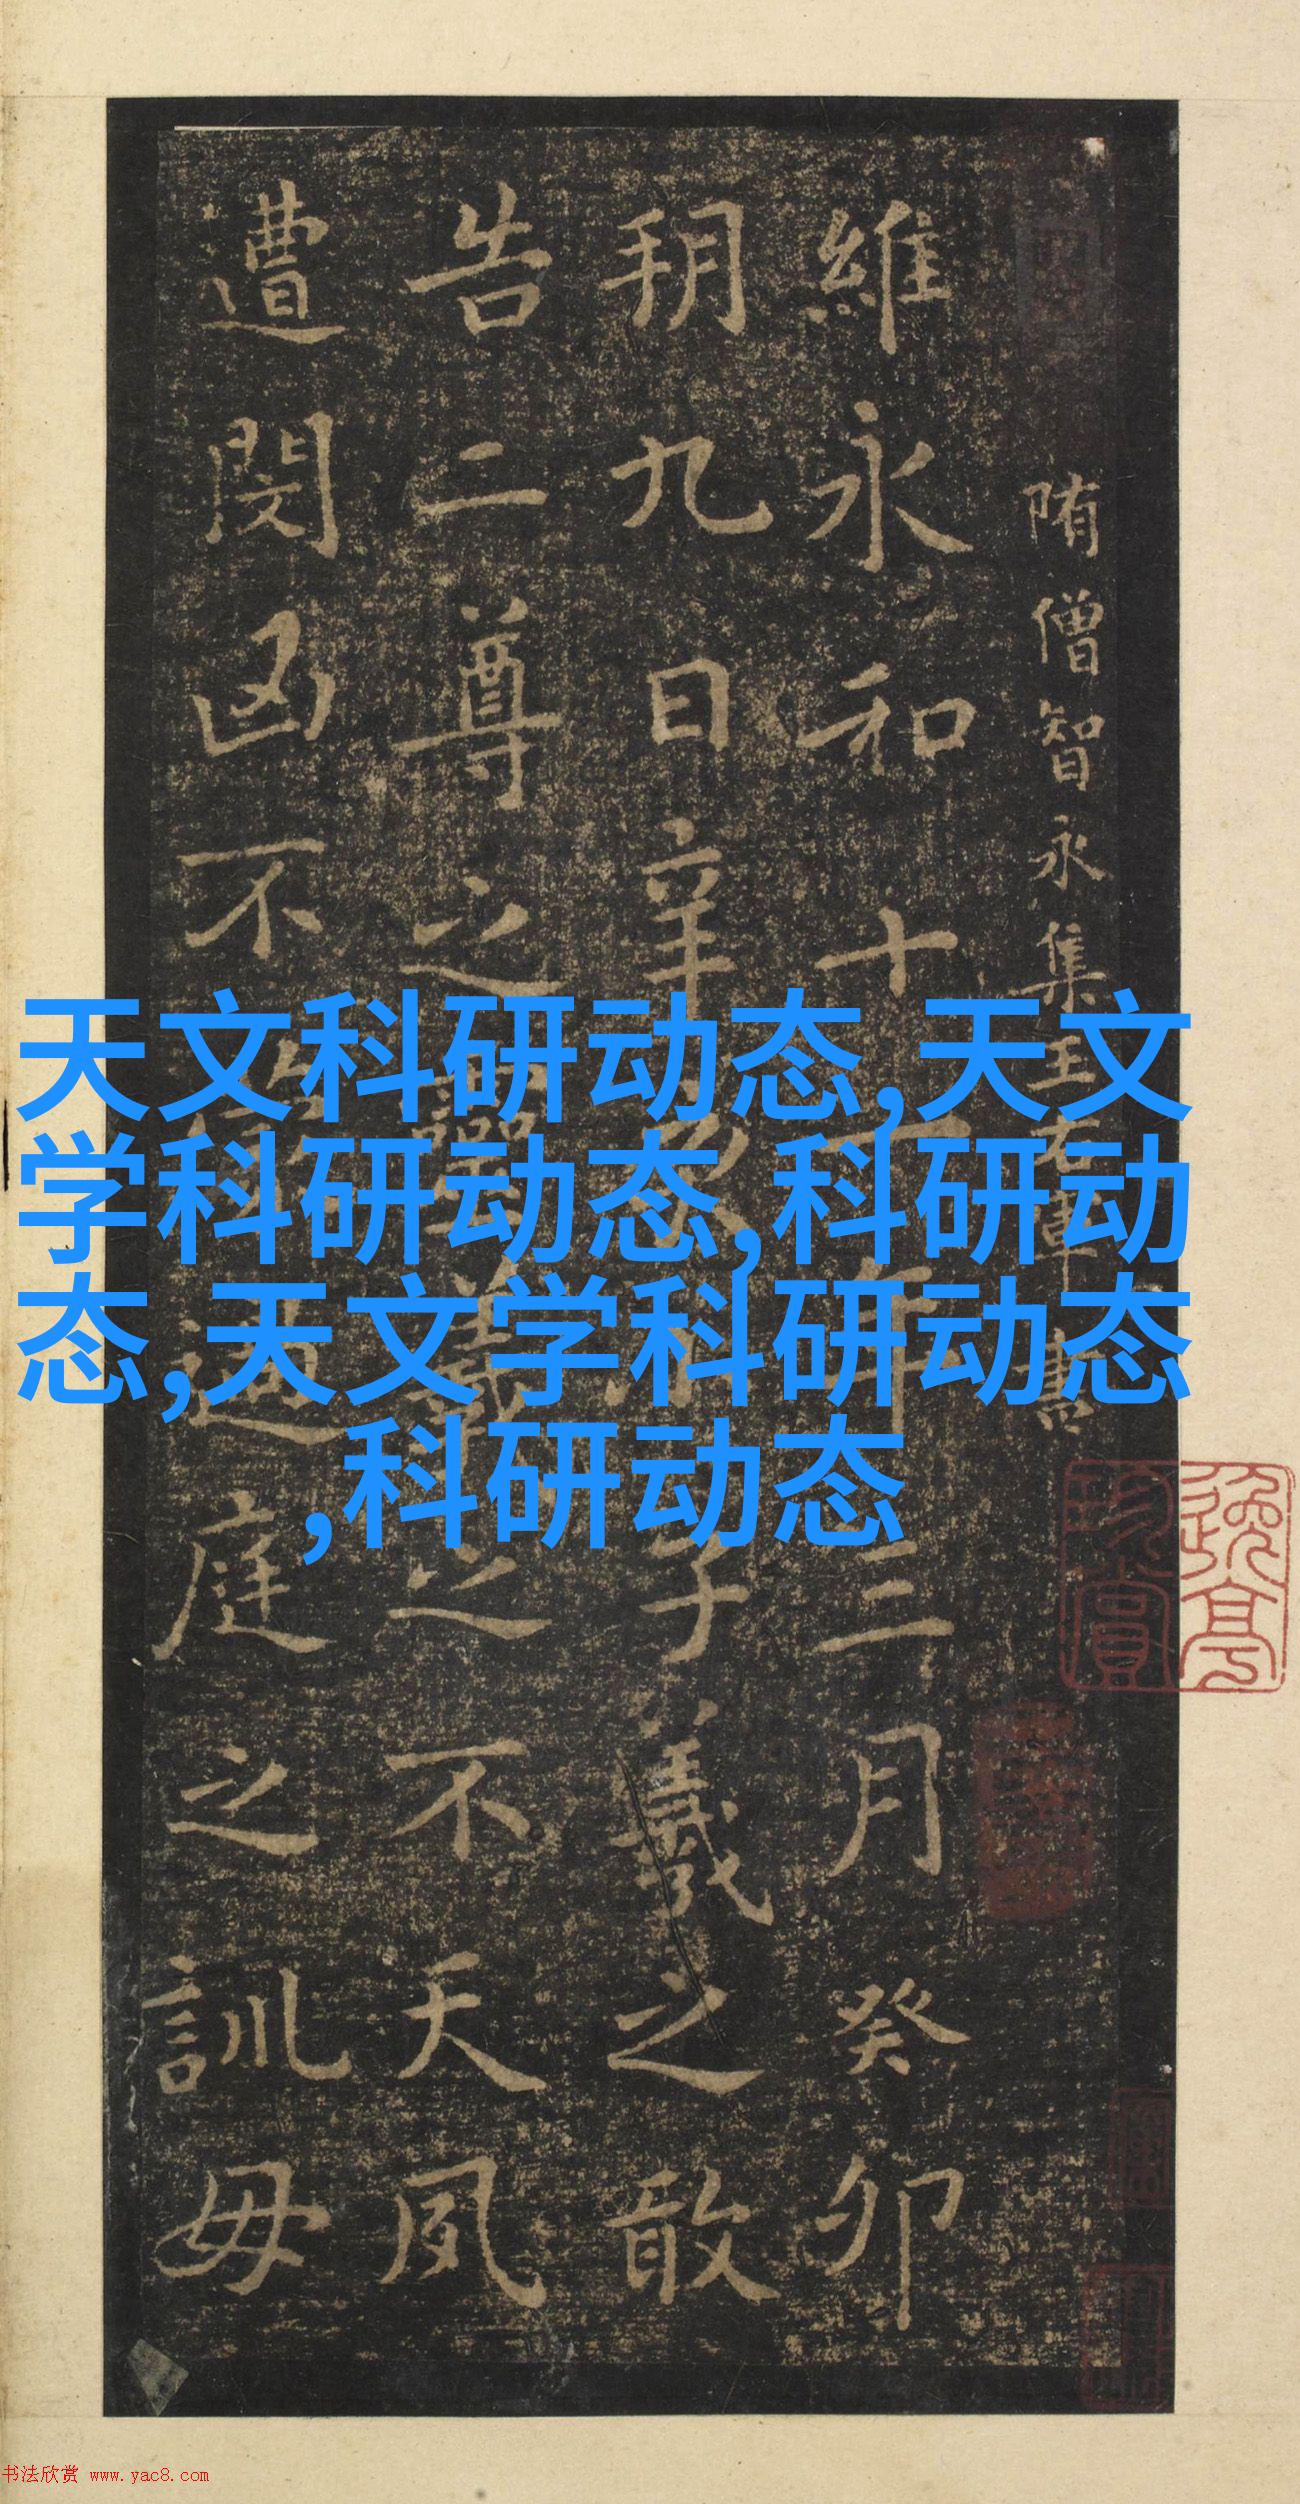 隋僧智永集王右軍書
維永和十一年三月癸卯
朔九日辛亥小子羲之敢
告二尊之靈羲之不天夙
遭閔凶不過庭之訓毋
天文科研动态,天文
学科研动态,科研动
态,天文学科研动态
,科研动态
珍賞
书法欣赏 www.yac8.com